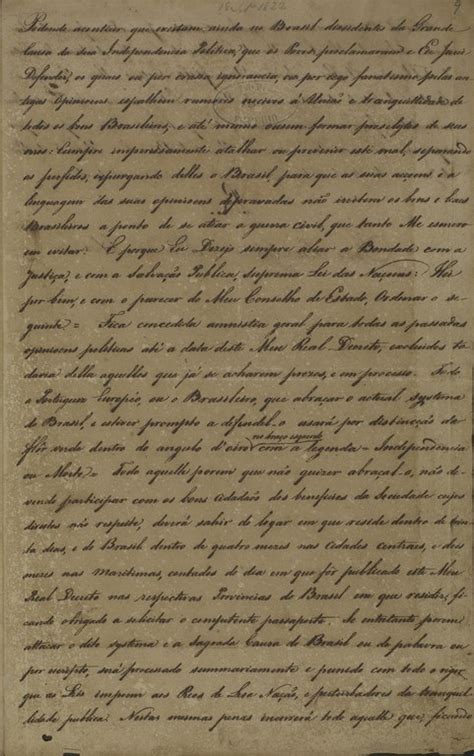 18-9-1822
9
Podendo acontecer que existam ainda no Brasil dissidentes da Grande
Causa da sua Independencia Politica, que os Povos proclamaram e Eu Jurei
Defender, os quaes ou por crassa ignorancia, ou por cego fanatismo pelas an-
tigas Opinioens espalhem rumores nocivos á União e tranquillidade de
todos os bons Brasileiros, e até mesmo ousem formar proselytos de seus
erros: Cumpre imperiosamente atalhar ou prevenir este mal, separando
os perfidos, expurgando delles o Brasil, para que as suas acçoens e a
linguagem das suas opinioens depravadas não irritem os bons e leaes
Brasileiros a ponto de se atear a guerra civil, que tanto Me esmero
em evitar: E porque Eu Desejo sempre aliar a Bondade com a
Justiça, e com a Salvação Publica, suprema Lei das Nacoens: Hei
por bem, e com o parecer do Meu Conselho de Estado, Ordenar o se-
guinte = Fica concedida amnistia geral para todas as passadas
opinioens politicas até a data deste Meu Real Decreto, excluidos to-
davia della aquelles que já se acharem prezos, e em processo. Todo
o Portuguez Europeo, ou o Brasileiro, que abraçar o actual systema
do Brasil, e estiver prompto a defendel-o usará por distincção da
no braço esquerdo
flôr verde dentro do angulo d'oiro com a legenda = Independencia
ou Morte = Todo aquelle porem que não quizer abraçal-o, não de-
vendo participar com os bons cidadãos dos beneficios da Sociedade cujos
direitos não respeita, deverá sahir do logar em que reside dentro de trin-
ta dias, e do Brasil dentro de quatro mezes nas cidades centraes, e dois
mezes nas maritimas, contados do dia em que fôr publicado este Meu
Real Decreto nas respectivas Provincias do Brasil em que residir, fi-
cando obrigado a solicitar o competente passaporte. Se entretanto porem
attacar o dito systema e a Sagrada Causa do Brasil ou de palavra ou
por escripto, será processado summariamente e punido com todo o rigor
que as Leis impoem aos Reos de Lesa Nação, e perturbadores da tranquil-
lidade publica. Nestas mesmas penas incorrerá todo aquelle que, ficando